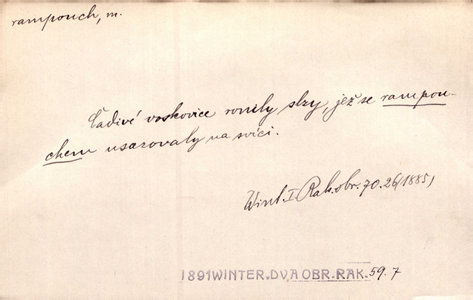 rampouch, m.
Čadivé voskovice ronily slzy, jež se rampou-
chem usazovaly na svíci.
Wint. I Rak. obr. 70. 26 (1885)
1891 WINTER. DVA OBR. RAK. 59. 7